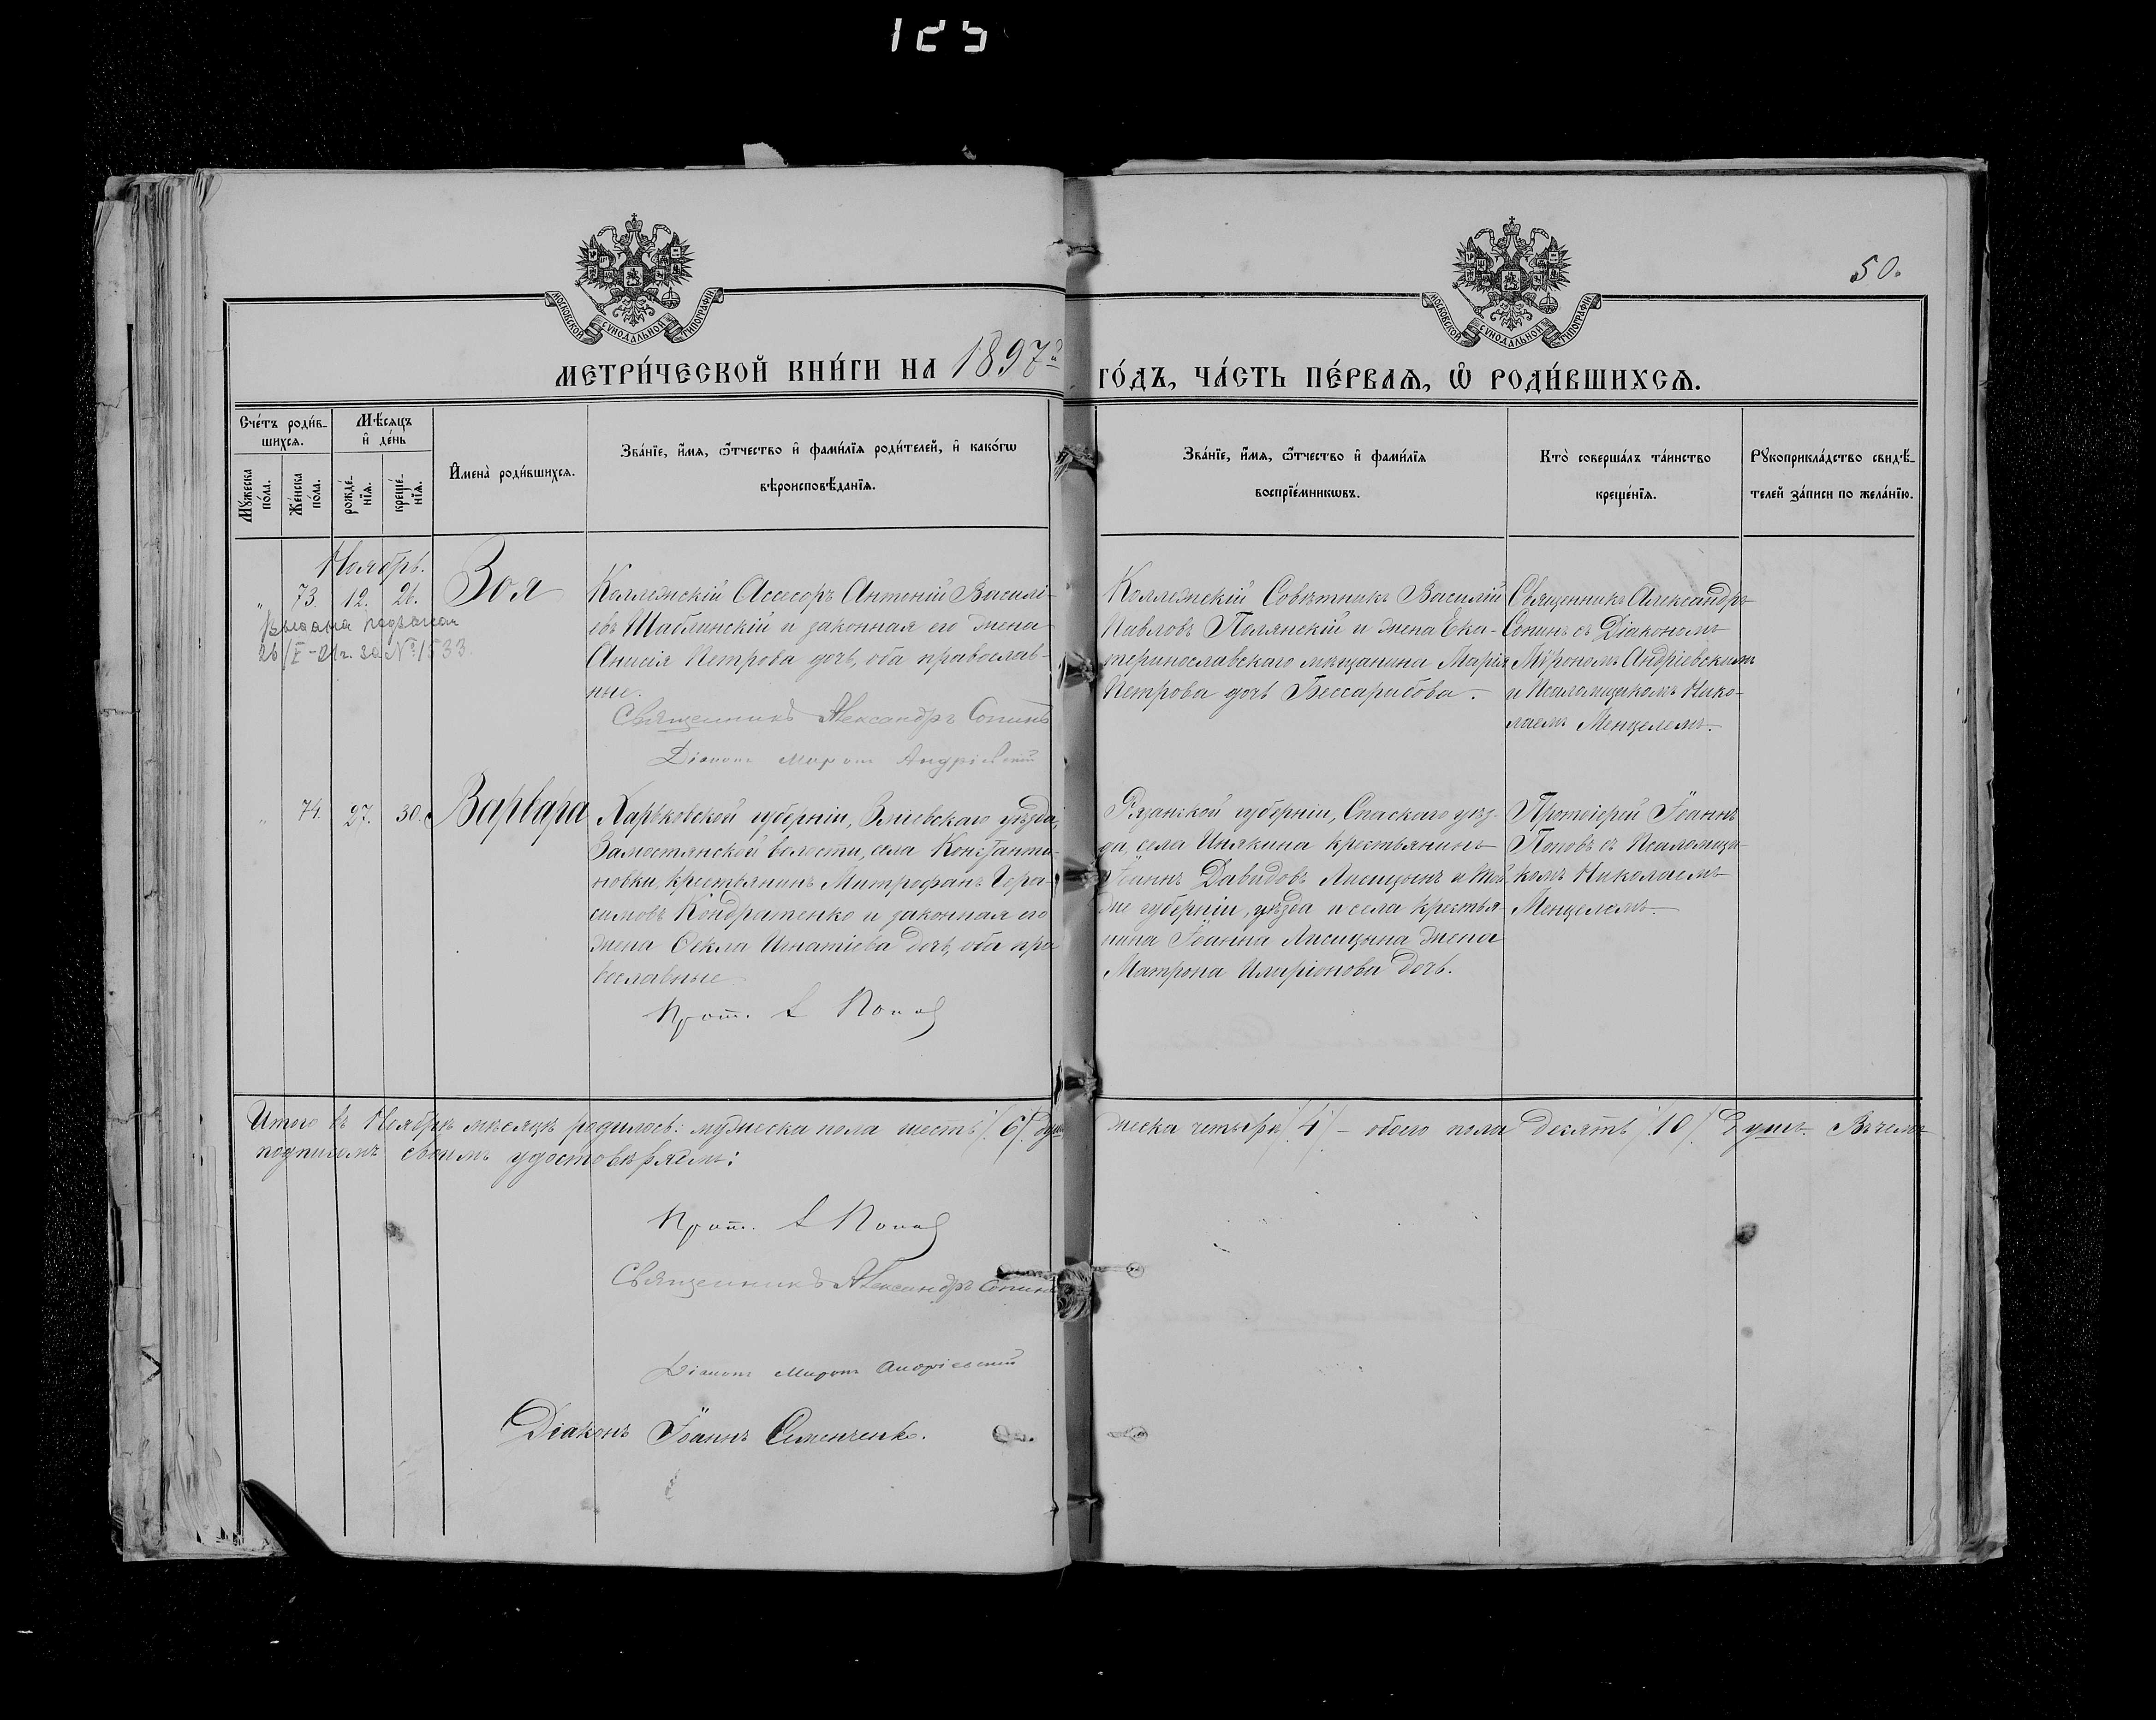 125
50.
МОСКОВСКОЙ СУНОДАЛЬНОЙ ТИПОГРАФІИ
МОСКОВСКОЙ СУНОДАЛЬНОЙ ТИПОГРАФІИ
МЕТРИ́ЧЕСКОЙ КНИ́ГИ НА 1897й
ГО́ДЪ, ЧА́СТЬ ПЕ́РВАѦ, Ѡ҆ РОДИ́ВШИХСѦ.
Сче́тъ роди́в-
шихсѧ.
Мѣ́сѧцъ
и҆ де́нь
Мꙋ́жеска
по́ла.
Же́нска
по́ла.
рожде́-
нїѧ.
креще́-
нїѧ.
И҆мена̀ роди́вшихсѧ.
Зва́нїе, и҆́мѧ, ѻ҆́тчество и҆ фами́лїѧ роди́телей, и҆ како́гѡ
вѣроисповѣ́данїѧ.
Зва́нїе, и҆́мѧ, ѻ҆́тчество и҆ фами́лїѧ
воспрїе́мникѡвъ.
Кто̀ соверша́лъ та́инство
креще́нїѧ.
Рꙋкоприкла́дство свидѣ́-
телей за́писи по жела́нїю.
Ноябрь.
" 73. 12. 26. Зоя
Выдана
26/V-21г. за № 1533
Коллежскій Ассесоръ Антоній Василі-
евъ Шаблинскій и законная его жена
Анисія Петрова дочь, оба православ-
ные.
Священникъ Александръ Сопинъ
Діаконъ Миронъ Андріевскій
Коллежскій Совѣтникъ Василій
Павловъ Полянскій и жена Ека-
теринославскаго мѣщанина Марія
Петрова дочь Бессарабова.
Священникъ Александръ
Сопинъ съ Діакономъ
Мѵрономъ Андріевскимъ
и Псаломщикомъ Нико-
лаемъ Менцелемъ.
" 74. 27. 30. Варвара
Харьковской губерніи, Зміевскаго уѣзда,
Замостянской волости, села Константи-
новки, крестьянинъ Митрофанъ Гера-
симовъ Кондратенко и законная его
жена Ѳекла Игнатіева дочь, оба пра
вославные.
Прот. І Поповъ
Рязанской губерніи, Спаскаго уѣз-
да, села Инякина крестьянинъ
Іоаннъ Давидовъ Лисицынъ и той
же губерніи, уѣзда и села крестья-
нина Іоанна Лисицына жена
Матрона Иларіонова дочь.
Протоіерей Іоаннъ
Поповъ съ Псаломщи-
комъ Николаемъ
Менцелемъ.
Итого въ Ноябрѣ мѣсяцѣ родилось: мужеска пола шесть /6/ душъ
женска четыре /4/ – обоего пола десять /10/ Душъ. Въ чемъ
подписомъ своимъ удостовѣряемъ:
Прот. І Поповъ
Священникъ Александръ Сопинъ
Діаконъ Миронъ Андріевскій
Діаконъ Іоаннъ Семенченко.